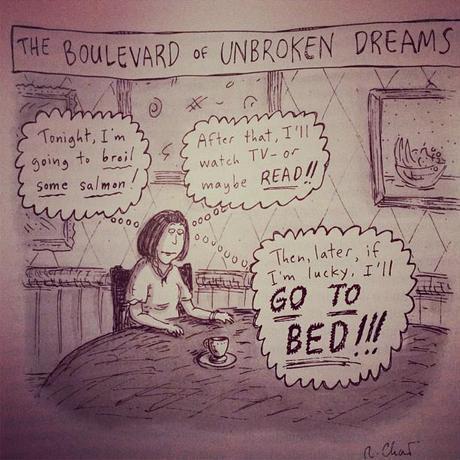 THE BOULEVARD OF UNBROKEN DREAMS
Tonight, I'm
going to broil
some salmon!
After that, I'll
watch TV - or
maybe READ!!
Then, later, if
I'm lucky, I'll
GO TO
BED!!!
R. Chast